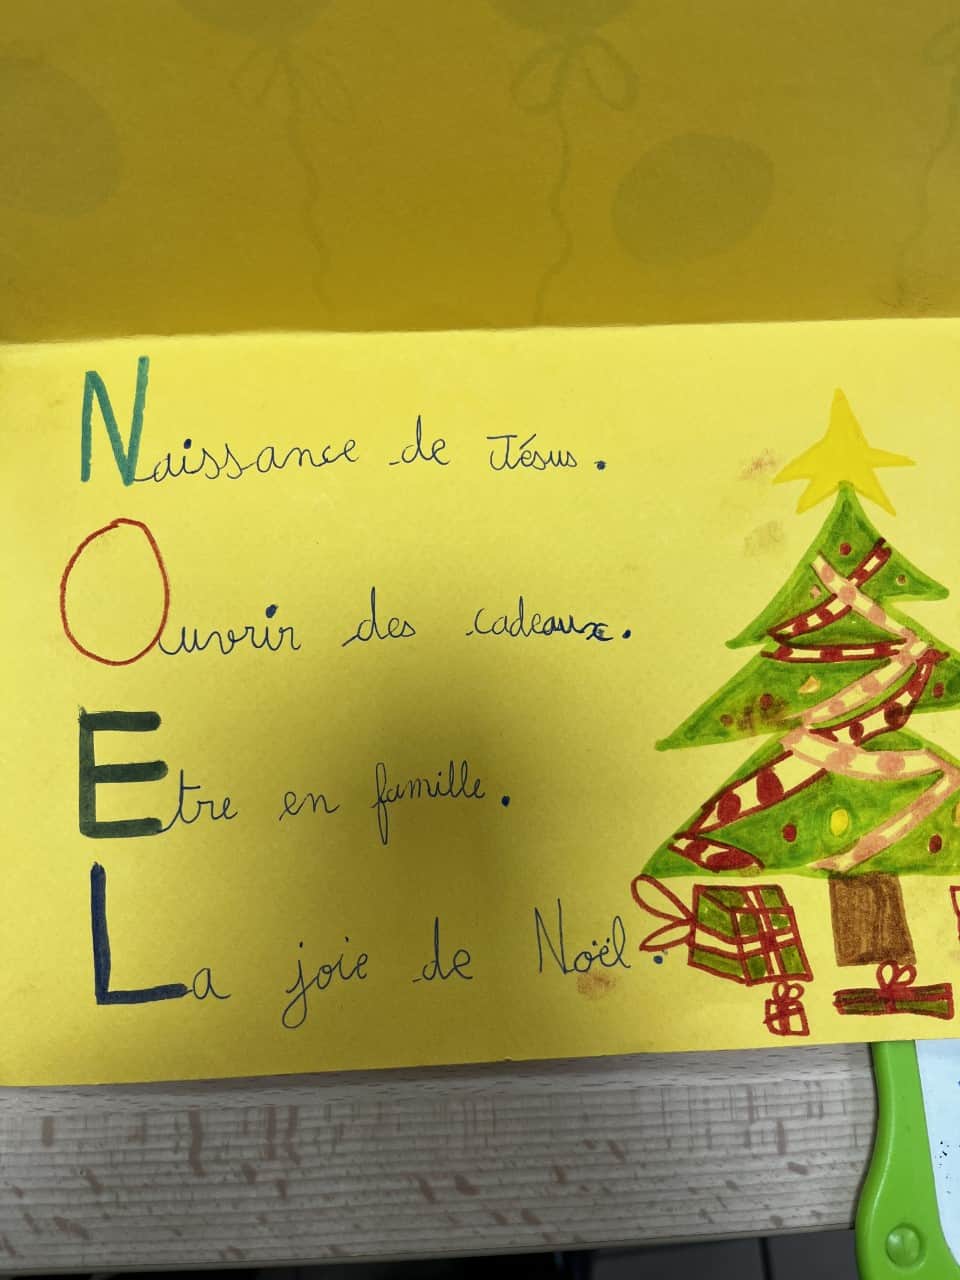 Naissance de Jésus.
Ouvrir des cadeaux.
Etre en famille.
La joie de Noël.